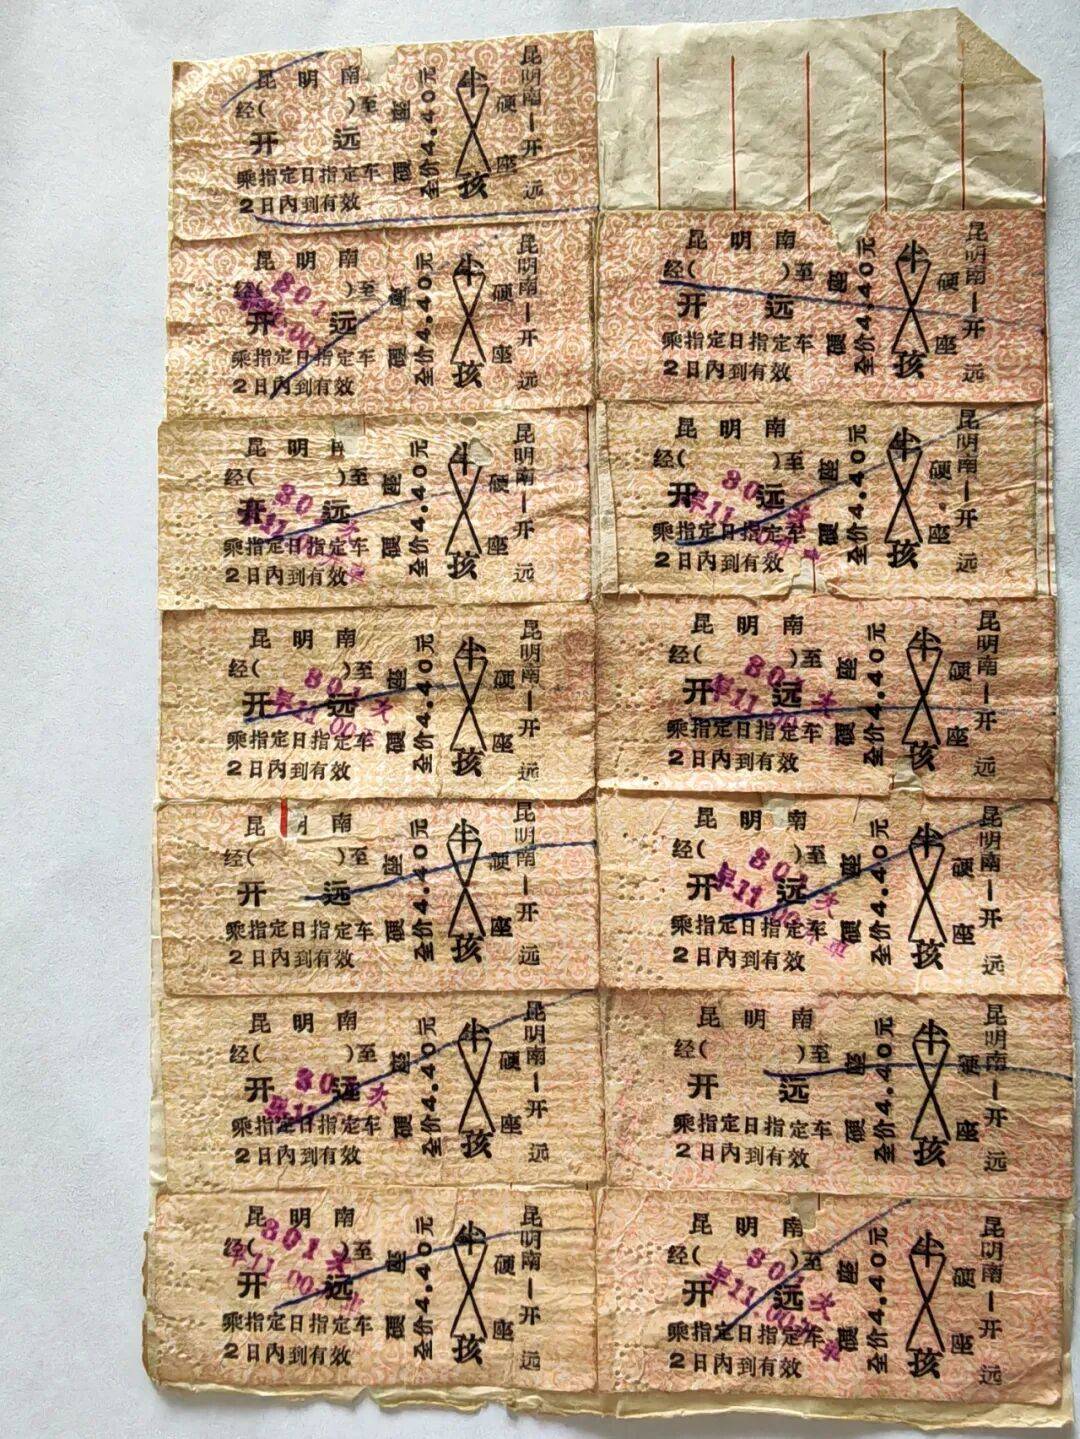 昆明南
经( )至
开远
乘指定日指定车
2日内到有效
硬座
全价4.40元
半孩
硬座
昆明南—开远
昆明南
经( )至
开远
乘指定日指定车
2日内到有效
801
硬座
全价4.40元
半孩
硬座
昆明南—开远
昆明
经( )至
开远
乘指定日指定车
2日内到有效
硬座
全价4.40元
半孩
硬座
昆明南—开远
昆明南
经( )至
开远
乘指定日指定车
2日内到有效
801次
早11 00
硬座
全价4.40元
半孩
硬座
昆明南—开远
昆明南
经( )至
开远
乘指定日指定车
2日内到有效
硬座
全价4.40元
半孩
硬座
昆明南—开远
昆明南
经( )至
开远
乘指定日指定车
2日内到有效
硬座
全价4.40元
半孩
硬座
昆明南—开远
昆明南
经( )至
开远
乘指定日指定车
2日内到有效
801次
早11 00 车
硬座
全价4.40元
半孩
硬座
昆明南—开远
昆明南
经( )至
开远
乘指定日指定车
2日内到有效
硬座
全价4.40元
半孩
硬座
昆明南—开远
昆明南
经( )至
开远
乘指定日指定车
2日内到有效
硬座
全价4.40元
半孩
硬座
昆明南—开远
昆明南
经( )至
开远
乘指定日指定车
2日内到有效
801次
早11 00
硬座
全价4.40元
半孩
硬座
昆明南—开远
昆明南
经( )至
开远
乘指定日指定车
2日内到有效
801次
早11 00 车
硬座
全价4.40元
半孩
硬座
昆明南—开远
昆明南
经( )至
开远
乘指定日指定车
2日内到有效
硬座
全价4.40元
半孩
硬座
昆明南—开远
昆明南
经( )至
开远
乘指定日指定车
2日内到有效
801次
早11.00 车
硬座
全价4.40元
半孩
硬座
昆明南—开远